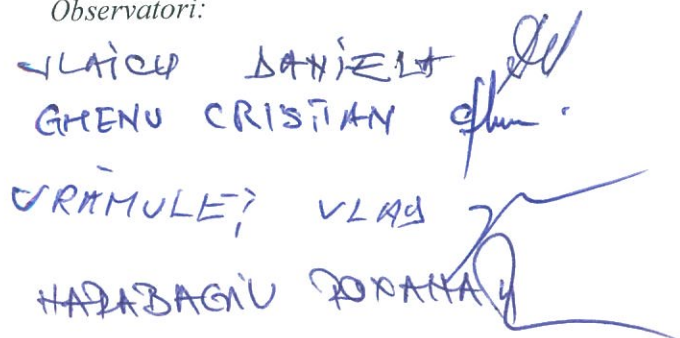 Observatori:
VLAICU DANIELA
GHENU CRISTIAN
VRÂMULEȚ VLAD
HARABAGIU ROXANA